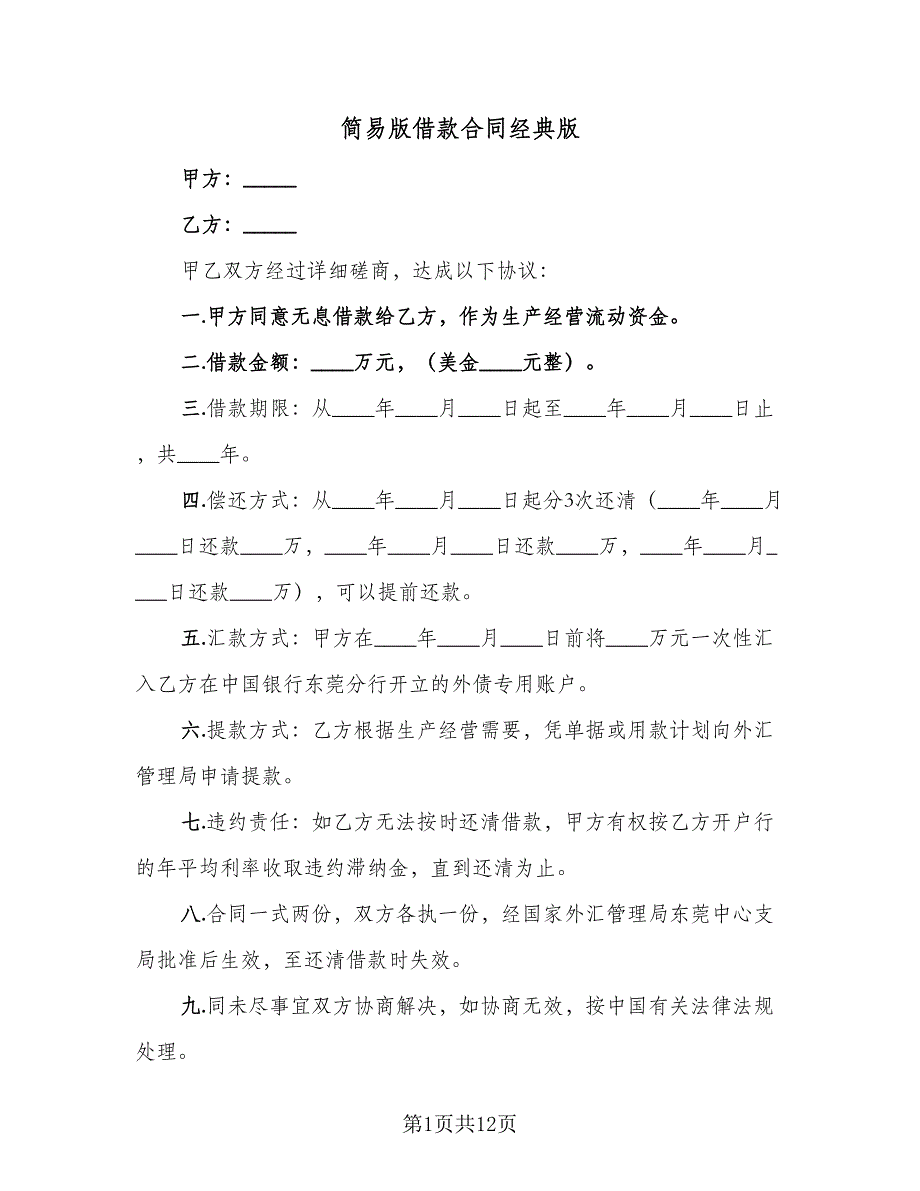 简易版借款合同经典版
甲方：_____
乙方：_____
甲乙双方经过详细磋商，达成以下协议：
一.甲方同意无息借款给乙方，作为生产经营流动资金。
二.借款金额：____万元，（美金____元整）。
三.借款期限：从____年____月____日起至____年____月____日止
，共____年。
四.偿还方式：从____年____月____日起分3次还清（____年____月
____日还款____万，____年____月____日还款____万，____年____月_
___日还款____万），可以提前还款。
五.汇款方式：甲方在____年____月____日前将____万元一次性汇
入乙方在中国银行东莞分行开立的外债专用账户。
六.提款方式：乙方根据生产经营需要，凭单据或用款计划向外汇
管理局申请提款。
七.违约责任：如乙方无法按时还清借款，甲方有权按乙方开户行
的年平均利率收取违约滞纳金，直到还清为止。
八.合同一式两份，双方各执一份，经国家外汇管理局东莞中心支
局批准后生效，至还清借款时失效。
九.同未尽事宜双方协商解决，如协商无效，按中国有关法律法规
处理。
第1页共12页